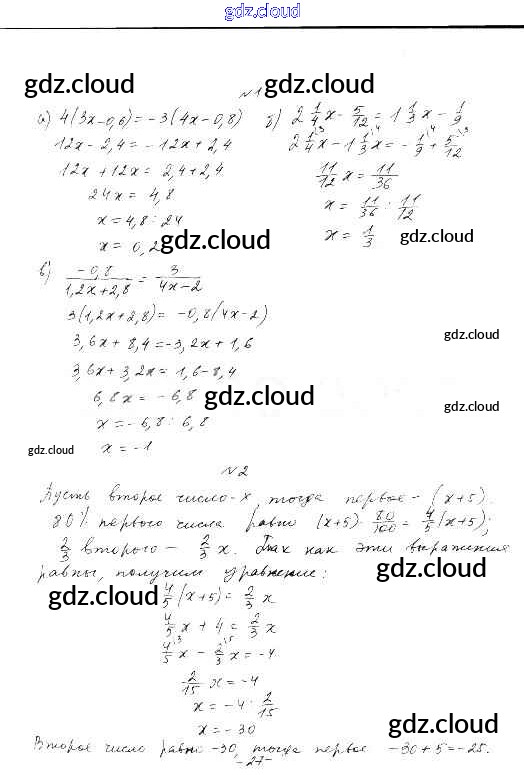 gdz.cloud
gdz.cloud
gdz.cloud
№1
а) 4(3x-0,6)=-3(4x-0,8)
12x-2,4=-12x+2,4
12x+12x=2,4+2,4
24x=4,8
x=4,8:24
x=0,2
gdz.cloud
б) 2 1/4 x - 5/12 = 1 1/3 x - 1/9
2 1/4 x - 1 1/3 x = -1/9 + 5/12
11/12 x = 11/36
x = 11/36 : 11/12
x = 1/3
gdz.cloud
в) -0,8/(1,2x+2,8) = 3/(4x-2)
3(1,2x+2,8)= -0,8(4x-2)
gdz.cloud
3,6x+8,4=-3,2x+1,6
3,6x+3,2x=1,6-8,4
6,8x=-6,8
gdz.cloud
gdz.cloud
x=-6,8:6,8
gdz.cloud
x=-1
№2
Пусть второе число-x, тогда первое-(x+5).
80% первого числа равно (x+5)·80/100=4/5(x+5);
2/3 второго - 2/3 x. Так как эти выражения
равны, получим уравнение:
gdz.cloud
gdz.cloud
4/5(x+5)=2/3 x
4/5 x+4=2/3 x
4/5 x-2/3 x=-4
2/15 x=-4
x=-4·2/15
x=-30
gdz.cloud
Второе число равно -30, тогда первое -30+5=-25.
-27-